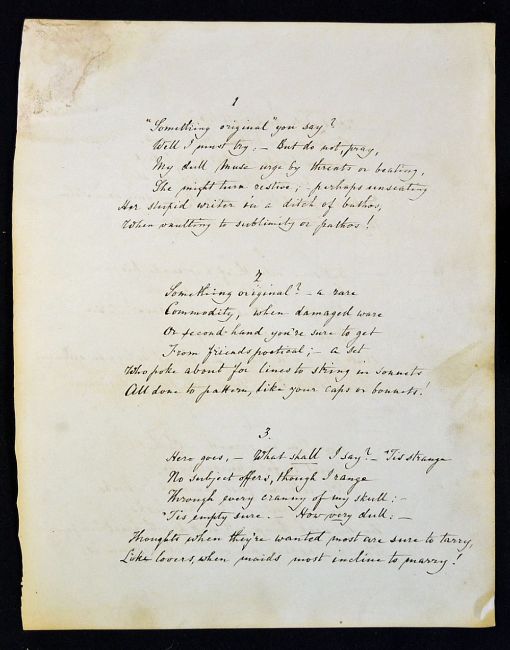 1
"Something original" you say?
Well I must try: – But do not, pray,
My dull Muse urge by threats or beating,
She might turn restive; – perhaps unseating
Her stupid writer in a ditch of bathos,
When vaulting to sublimity or pathos!
2
Something original? – a rare
Commodity, when damaged ware
Or second-hand you're sure to get
From friends poetical; – a set
Who poke about for lines to string in sonnets
All done to pattern, like your caps or bonnets!
3.
Here goes, – What shall I say? – 'Tis strange
No subject offers, though I range
Through every cranny of my skull: –
'Tis empty sure. – How very dull: –
Thoughts when they're wanted most are sure to tarry,
Like lovers, when maids most incline to marry!